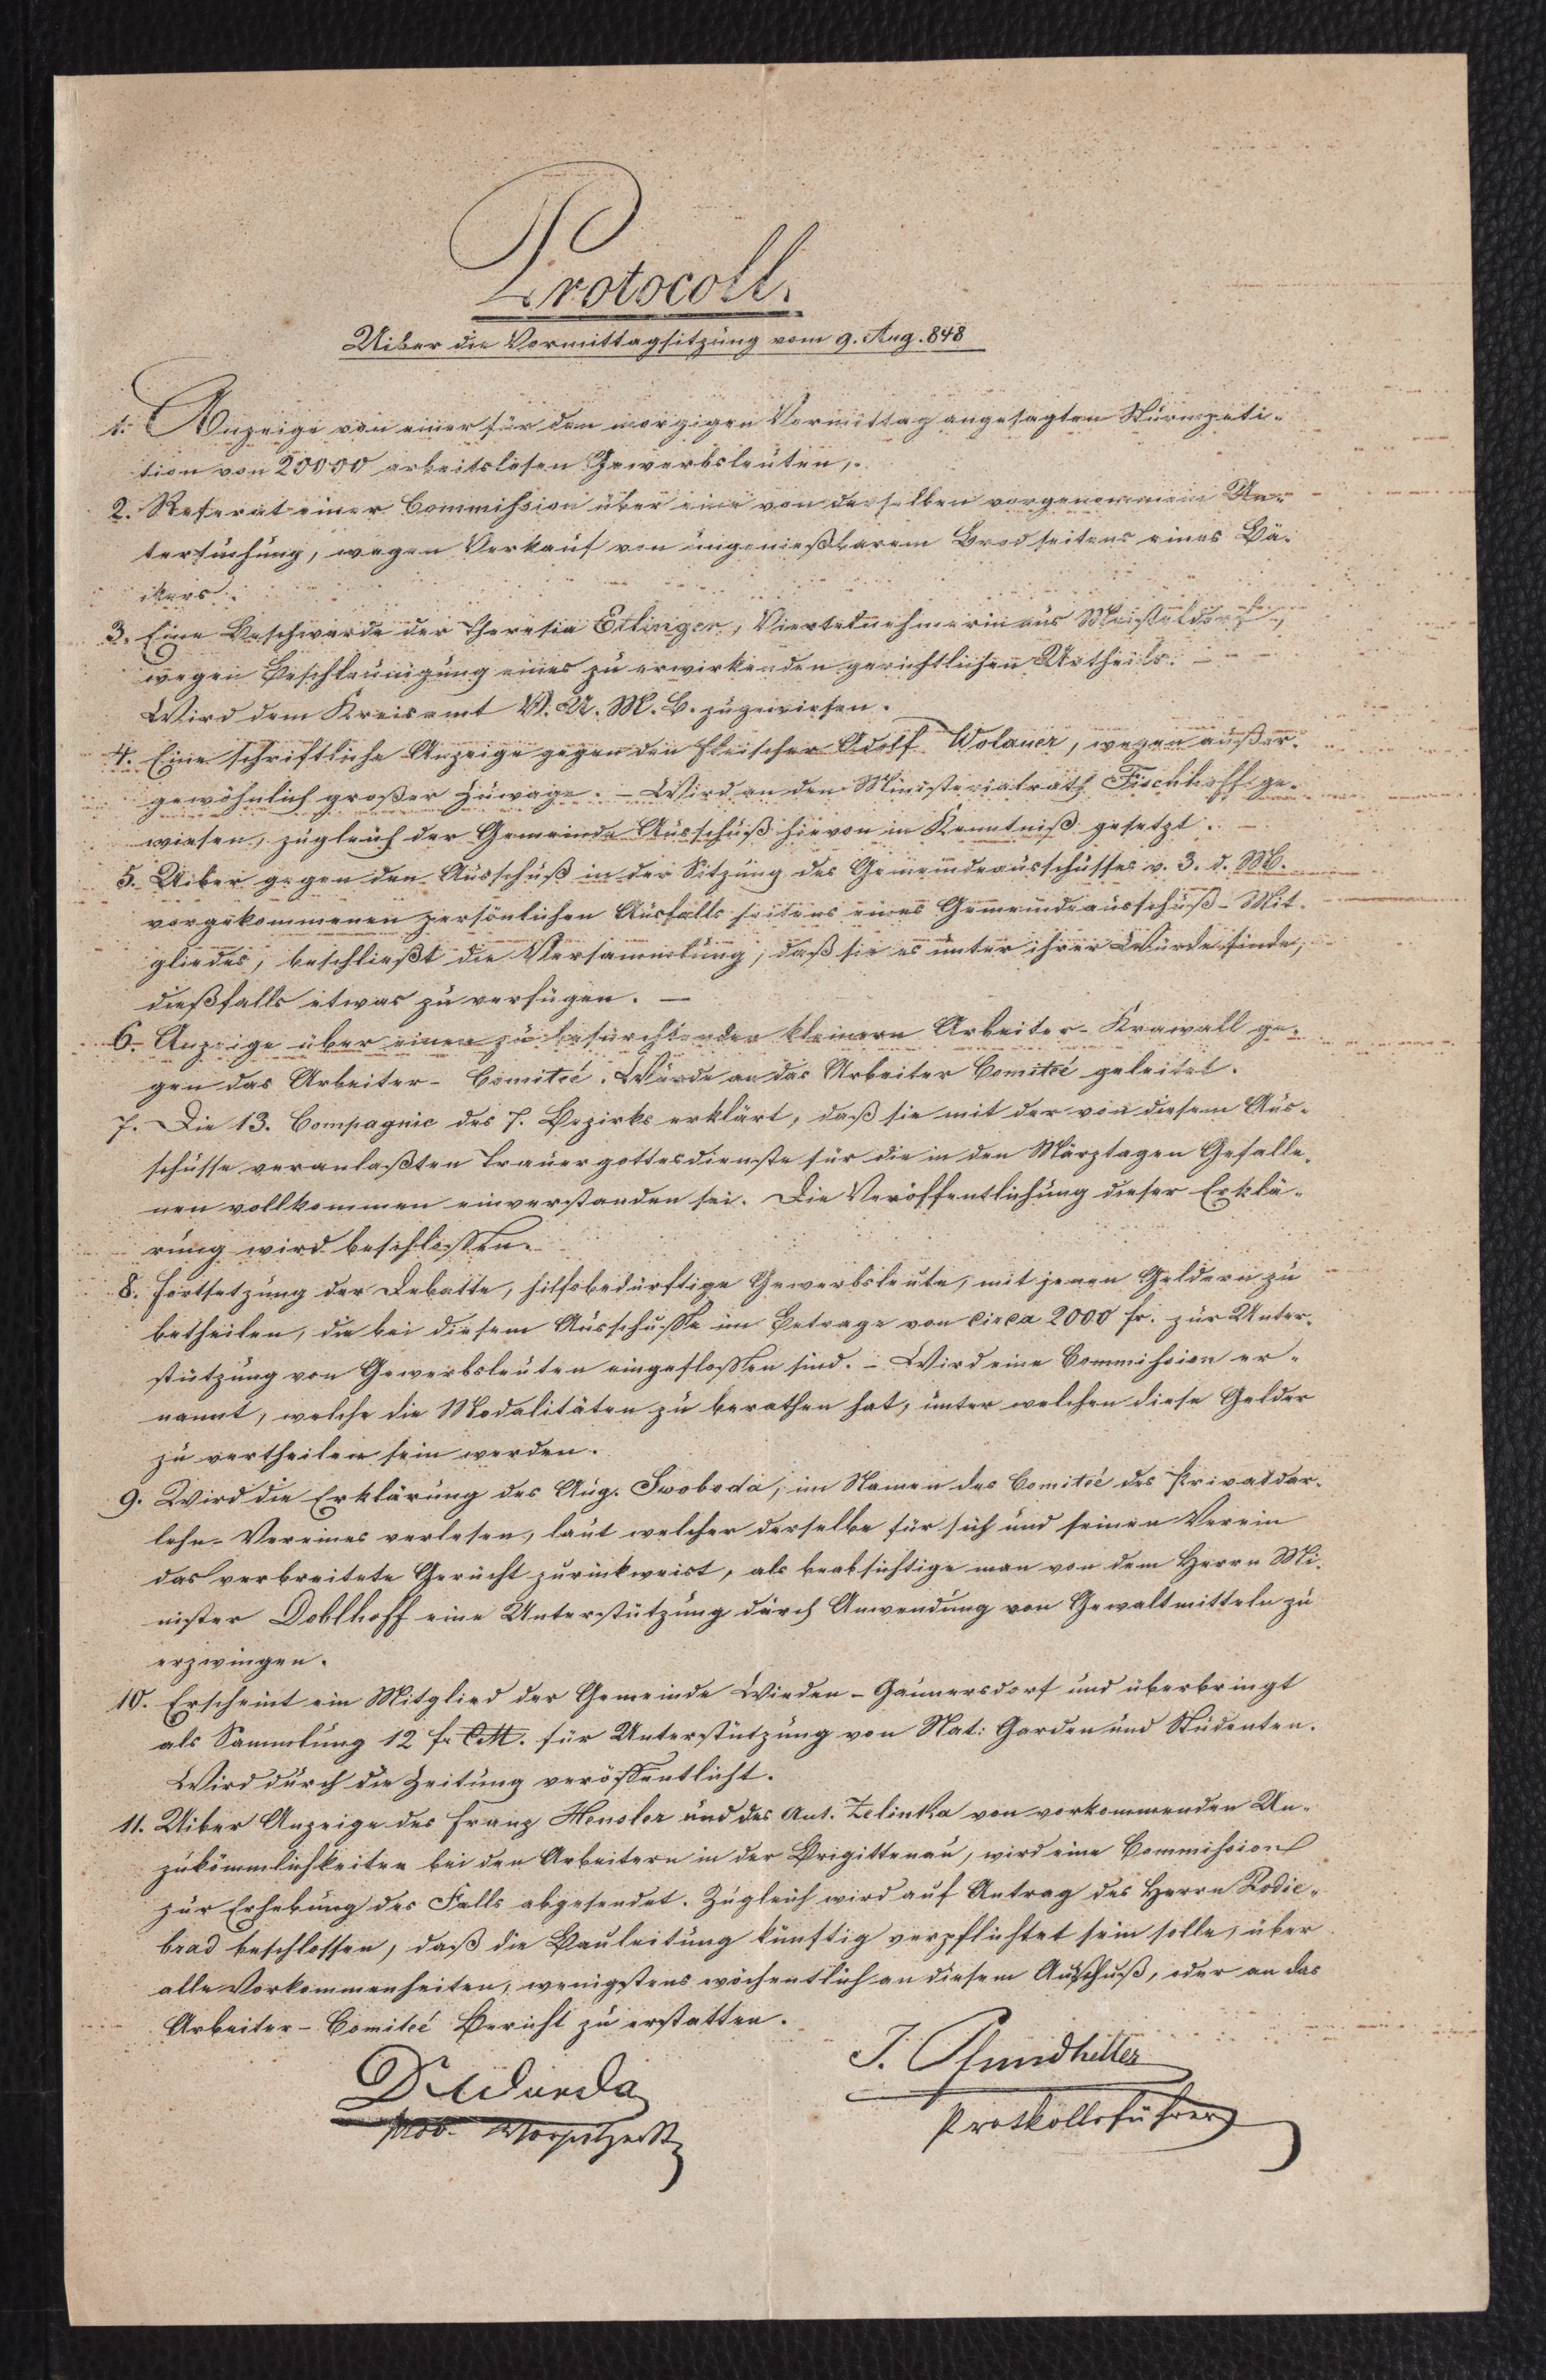 Protocoll.
Uiber die Vormittagsitzung vom 9. Aug. 848
1. Anzeige von einer für den morgigen Vormittag angesagten Sturmpeti-
tion von 20000 arbeitslosen Gewerbsleuten,.
2. Referat einer Commission über eine von derselben vorgenommene Un-
tersuchung, wegen Verkauf von ungenießbarem Brod seitens eines Bä-
ckers.
3. Eine Beschwerde der Theresia Etlinger, Viertelnehmerin aus Meißeldorf,
wegen Beschleunigung eines zu erwirkenden gerichtlichen Urtheils. –
Wird dem Kreisamt V. U. M. B. zugewiesen.
4. Eine schriftliche Anzeige gegen den Fleischer Adolf Wolauer, wegen außer-
gewöhnlich großer Zuwage. – Wird an den Ministerialrath Fischhoff ge-
wiesen, zugleich der Gemeinde Ausschuß hievon in Kenntniß gesetzt. –
5. Uiber gegen den Ausschuß in der Sitzung des Gemeindeausschusses v. 3. d. M.
vorgekommenen persönlichen Ausfalls seitens eines Gemeindeausschuß-Mit-
gliedes, beschließt die Versammlung, daß sie es unter ihrer Würde finde,
dießfalls etwas zu verfügen. –
6. Anzeige über einen zu befürchtenden kleinern Arbeiter-Krawall ge-
gen das Arbeiter-Comiteé. Wurde an das Arbeiter Comiteé geleitet.
7. Die 13. Compagnie des 7. Bezirks erklärt, daß sie mit der von diesem Aus-
schusse veranlaßten Trauergottesdienste für die in den Märztagen Gefalle-
nen vollkommen einverstanden sei. Die Veröffentlichung dieser Erklä-
rung wird beschlossen.
8. Fortsetzung der Debatte, hilfsbedürftige Gewerbsleute, mit jenen Geldern zu
betheilen, die bei diesem Ausschusse im Betrage von circa 2000 fr. zur Unter-
stützung von Gewerbsleuten eingeflossen sind. – Wird eine Commission er-
nannt, welche die Modalitäten zu berathen hat, unter welchen diese Gelder
zu vertheilen sein werden.
9. Wird die Erklärung des Aug. Swoboda, im Namen des Comiteé des Privatdar-
lehn-Vereines verlesen, laut welcher derselbe für sich und seinen Verein
das verbreitete Gerücht zurückweist, als beabsichtige man von dem Herrn Mi-
nister Doblhoff eine Unterstützung durch Anwendung von Gewaltmitteln zu
erzwingen.
10. Erscheint ein Mitglied der Gemeinde Wieden-Gaunersdorf und überbringt
als Sammlung 12 fr CM. für Unterstützung von Nat: Garden und Studenten.
Wird durch die Zeitung veröffentlicht.
11. Uiber Anzeige des Franz Hensler und des Ant. Zelinka von vorkommenden Un-
zukömmlichkeiten bei den Arbeitern in der Brigittenau, wird eine Commission
zur Erhebung des Falls abgesendet. Zugleich wird auf Antrag des Herrn Rodie-
brad beschlossen, daß die Bauleitung künftig verpflichtet sein solle, über
alle Vorkommenheiten, wenigstens wöchentlich an diesem Ausschuß, oder an das
Arbeiter-Comiteé Bericht zu erstatten.
J. Pfundheller
Protkollsführer